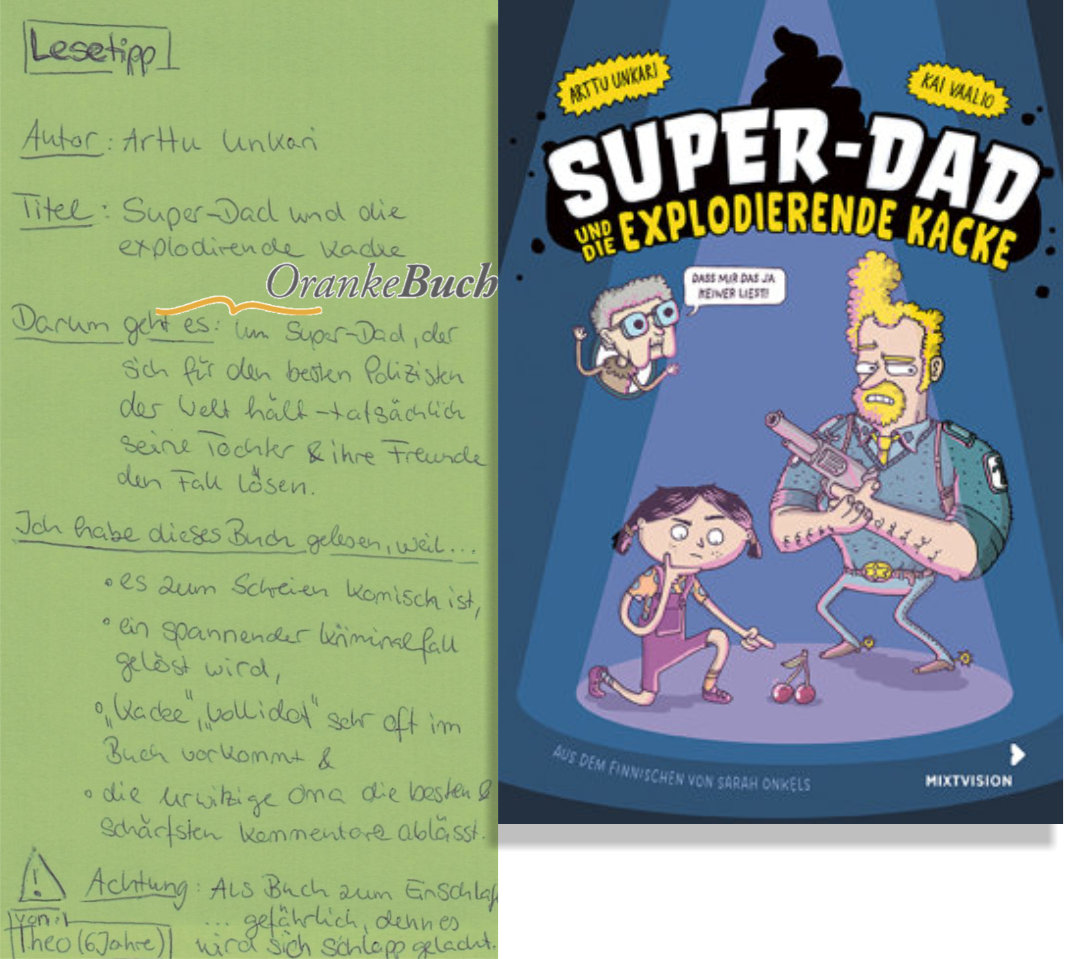 Lesetipp
Autor: Arttu Unkari
Titel: Super-Dad und die
explodirende Kacke
OrankeBuch
Darum geht es: Um Super-Dad, der
sich für den besten Polizisten
der Welt hält – tatsächlich
seine Töchter & ihre Freunde
den Fall lösen.
Ich habe dieses Buch gelesen, weil...
• es zum Schreien komisch ist,
• ein spannender Kriminalfall
gelöst wird,
• „Kacke", „Vollidiot" sehr oft im
Buch vorkommt &
• die urwitzige Oma die besten &
schärfsten Kommentare ablässt.
! Achtung: Als Buch zum Einschlaf
... gefährlich, denn es
wird sich schlapp gelacht.
von:
Theo (6 Jahre)
ARTTU UNKARI
KAI VAALIO
SUPER-DAD
UND DIE EXPLODIERENDE KACKE
DASS MIR DAS JA
KEINER LIEST!
AUS DEM FINNISCHEN VON SARAH ONKELS
MIXTVISION